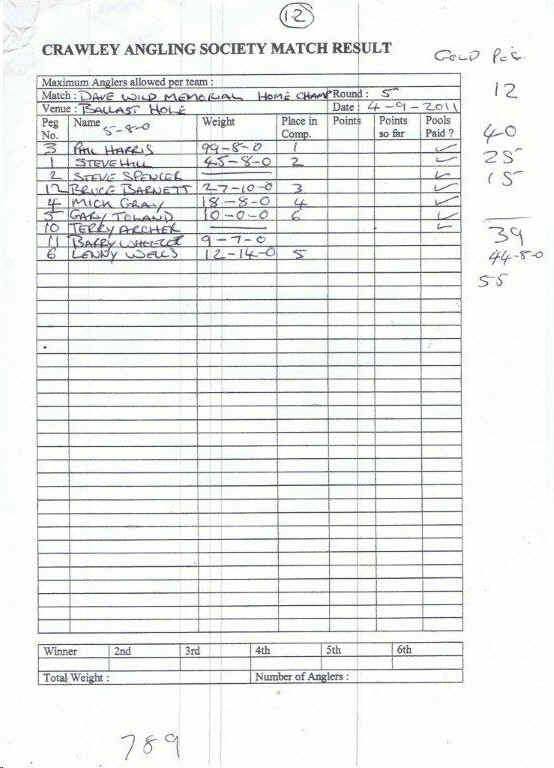 12
CRAWLEY ANGLING SOCIETY MATCH RESULT
GOLD PEG.
Maximum Anglers allowed per team :
Match : DAVE WILD MEMORIAL HOME CHAMP Round : 5
12
Venue : BALLAST HOLE Date : 4-9-2011
Peg No. Name Weight Place in Comp. Points Points so far Pools Paid ?
5-8-0
40
3 PAUL HARRIS 99-8-0 1 ✓
1 STEVE HILL 45-8-0 2 ✓
25
2 STEVE SPENCER ——— ✓
15
12 BRUCE BARNETT 27-10-0 3 ✓
4 MICK GRAY 18-8-0 4 ✓
5 GARY TOLAND 10-0-0 6 ✓
10 TERRY ARCHER ——— ✓
39
11 BARRY WHEELER 9-7-0
6 LENNY WELLS 12-14-0 5
44-8-0
55
Winner 2nd 3rd 4th 5th 6th
Total Weight : Number of Anglers :
789